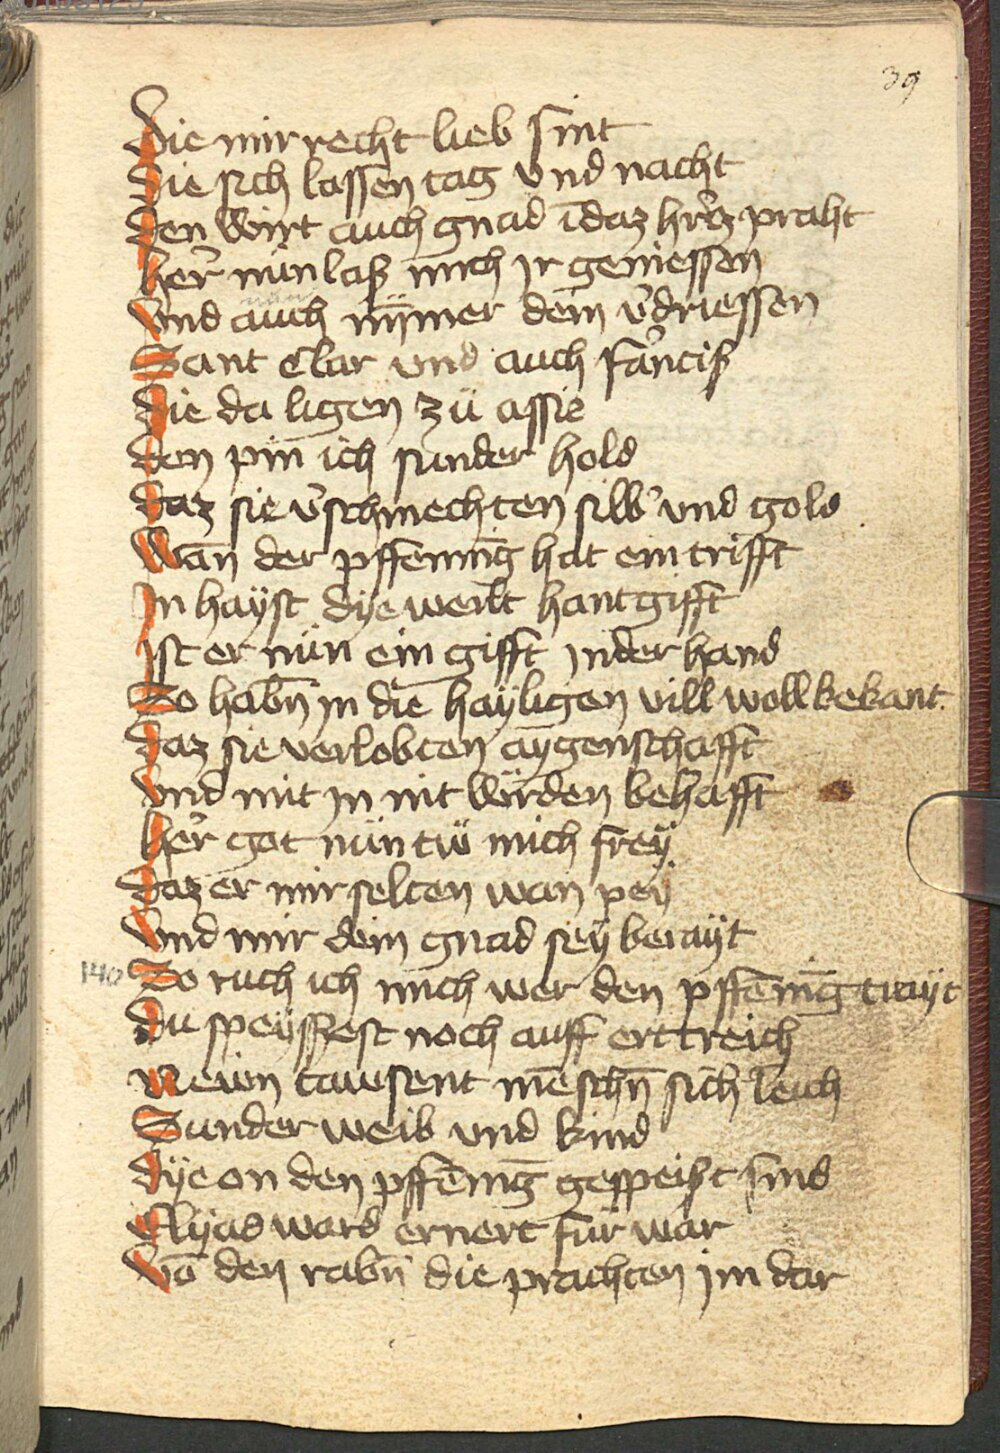 39
Die mir recht lieb sint
Die sich lassen tag vnd nacht
Den wirt auch gnad ī daz hr̄cz praht
her̄ nün laß mich ir geniessen
vnd auch nÿmer dem v̄driessen
Sant Clar vnd auch francisß
Die da ligen zü assie
Den pin ich sunder hold
Daz sie v̄schmechten silb̄ vnd gold
Wan̄ der pffenninḡ hat ein trifft
In haÿst dÿe werlt hantgifft
Ist er nün ein gifft in der hand
So habn̄ in die haÿligen vill woll bekant
Daz sie verlobten aÿgenschafft
vnd mit in nit würden behafft
her̄ got nün tü mich freÿ
Daz er mir selten wan peÿ
vnd mir dein gnad seÿ beraÿt
140 So ruch ich mich wer den pffēnīg traÿt
Du speÿssest noch auff erttreich
Newn tawsent mēschn̄ sich leich
Sunder weib vnd kind
Dÿe on den pffēnīg gespeißt sind
Elÿas ward ernert für war
Vō den rabn̄ die prachten im dar